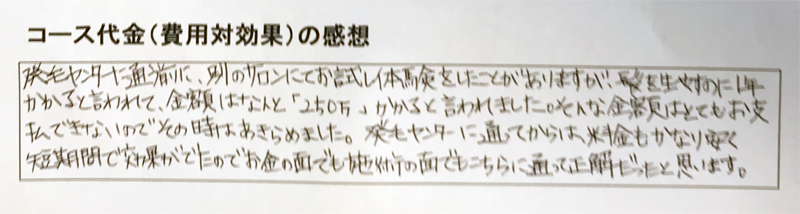 コース代金(費用対効果)の感想
発毛センターに通う前に、別のサロンにてお試し体験をしたことがありますが、髪を生やすのに1年
かかると言われて、金額はなんと「250万」かかると言われました。そんな金額はとてもお支
払できないのでその時はあきらめました。発毛センターに通ってからは、料金もかなり安く
短期間で効果がでたのでお金の面でも施術の面でもこちらに通って正解だったと思います。